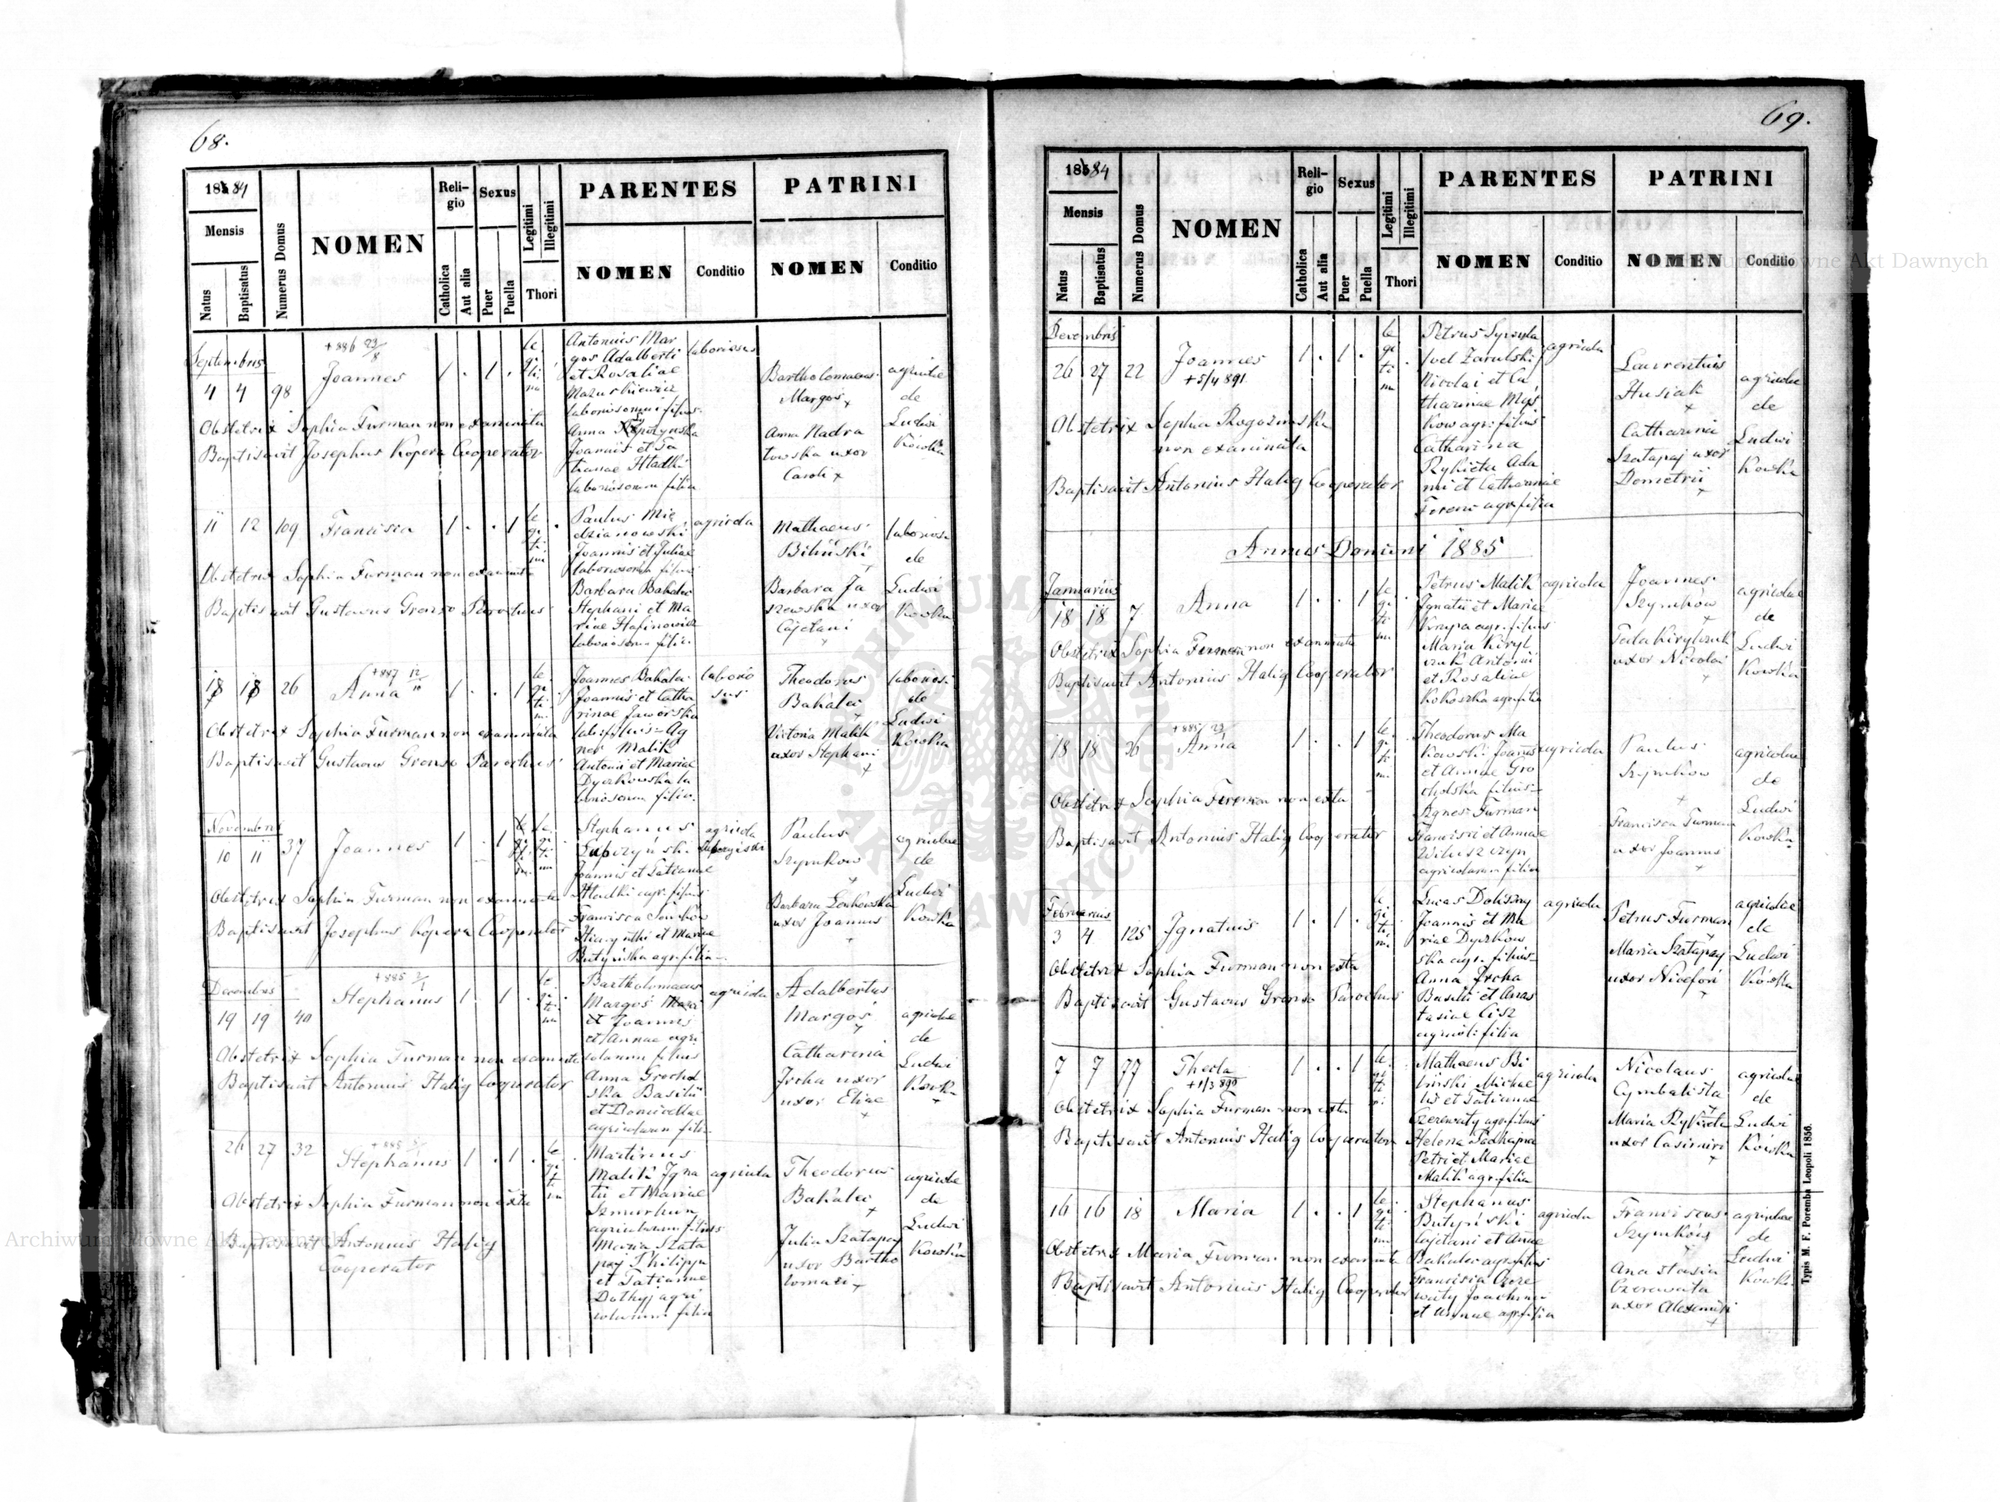 68.
1884
Mensis
Natus
Baptisatus
Numerus Domus
NOMEN
Religio
Catholica
Aut alia
Sexus
Puer
Puella
Legitimi
Illegitimi
Thori
PARENTES
NOMEN
Conditio
PATRINI
NOMEN
Conditio
Septembris
4 4 98
+886 23/8
Joannes
1 . 1 .
le
gi
ti
mi
Antonius Mar
gos Adalberti
et Rosaliae
Mazurkiewicz
laboriosorum filius
Anna
Joannis et Ta
tianae Hladki
laboriosorum filia
laboriosus
Bartholomaeus
Margos
+
Anna Nadra
towska uxor
Caroli +
agricolae
de
Ludwi
kówka
Obstetrix Sophia Furman non examinata
Baptisavit Josephus Kopera Cooperator
11 12 109
Francisca
1 . . 1
le
gi
ti
mi
Paulus Mie
dzianowski
Joannis et Juliae
laboriosorum filius
Barbara Bakalec
Stephani et Ma
riae
laboriosorum filia
agricola
Mathaeus
Biliński
+
Barbara Ja
szewska uxor
Cajetani
+
laboriosi
de
Ludwi
kówka
Obstetrix Sophia Furman non examinata
Baptisavit Gustavus Gronse Parochus
26
+887 12/10
Anna
1 . . 1
le
gi
ti
mi
Joannes Bakalec
Joannis et Catha
rinae Jaworska
lab. filius Ag
nes Malik
Antonii et Mariae
Dyczkowska la
boriosorum filia
laborio
sus
Theodorus
Bakalec
+
Victoria Malik
uxor Stephani
+
laboriosi
de
Ludwi
kówka
Obstetrix Sophia Furman non examinata
Baptisavit Gustavus Gronse Parochus
Novembris
10 11 37
Joannes
1 . 1 .
le
gi
ti
mi
Stephanus
Łubczyński
Joannis et Tatianae
Hladki agr. filius
Francisca
Hiacynthi et Mariae
Butyńska agr. filia
agricola
Paulus
Szymkow
+
Barbara
uxor Joannis
+
agricolae
de
Ludwi
kówka
Obstetrix Sophia Furman non examinata
Baptisavit Josephus Kopera Cooperator
Decembris
19 19 40
+885 2/1
Stephanus
1 . 1 .
le
gi
ti
mi
Bartholomaeus
Margos
et Joannis
et Annae agri
colarum filius
Anna Grochol
ska Basilii
et Domicellae
agricolarum filia
agricola
Adalbertus
Margós
+
Catharina
Jrcha uxor
uxor Eliae
+
agricolae
de
Ludwi
kówka
+
Obstetrix Sophia Furman non examinata
Baptisavit Antonius Halig Cooperator
26 27 32
Stephanus
1 . 1 .
le
gi
ti
mi
Martinus
Malik Igna
tii et Mariae
agricolarum filius
Maria Szata
paj Philippi
et Tatianae
agri
colarum filia
agricola
Theodorus
Bakalec
+
Julia Szatapaj
uxor Bartho
lomaei +
agricolae
de
Ludwi
kówka
Obstetrix Sophia Furman non exta
Baptisavit Antonius Halig
Cooperator
69.
1884
Mensis
Natus
Baptisatus
Numerus Domus
NOMEN
Religio
Catholica
Aut alia
Sexus
Puer
Puella
Legitimi
Illegitimi
Thori
PARENTES
NOMEN
Conditio
PATRINI
NOMEN
Conditio
Decembris
26 27 22
Joannes
+5/4 891
1 . 1 .
le
gi
ti
mi
Petrus
vel Zarulski
Nicolai et Ca
tharinae
agr. filius
Catharina
Rykieta Ada
mi et Catharinae
agr. filia
agricola
Laurentius
Husiak
+
Catharina
Szatapaj uxor
Demetrii
+
agricolae
de
Ludwi
kówka
Obstetrix Sophia Rogozinska
non examinata
Baptisavit Antonius Halig Cooperator
Annus Domini 1885
Januarius
18 18 7
Anna
1 . . 1
le
gi
ti
mi
Petrus Malik
Ignatii et Mariae
agr. filius
Maria Kiryl
czuk Antonii
et Rosaliae
Kokoszka agr. filia
agricola
Joannes
Szymków
+
Tatakirylczuk
uxor Nicolai
+
agricolae
de
Ludwi
kówka
Obstetrix Sophia Furman non examinata
Baptisavit Antonius Halig Cooperator
18 18 26
Anna
1 . . 1
le
gi
ti
mi
Theodorus Ma
kowski Joannis
et Annae Gro
cholska filius
Agnes Furman
Francisci et Annae
agricolarum filia
agricola
Paulus
Szymkow
+
Francisca Furman
uxor Joannis
+
agricolae
de
Ludwi
kówka
Obstetrix Sophia Furman non exta
Baptisavit Antonius Halig Cooperator
Februarius
3 4 125
Ignatius
1 . 1 .
le
gi
ti
mi
Lucas Dolisny
Joannis et Ma
riae Dyczkow
ska agr. filius
Anna Jrcha
Basilii et Anas
tasiae Cisz
agricol: filia
agricola
Petrus Furman
Maria Szatapaj
uxor Nicefori
+
agricolae
de
Ludwi
kówka
Obstetrix Sophia Furman non exta
Baptisavit Gustavus Gronse Parochus
7 7 77
Thecla
+1/3 890
1 . . 1
le
gi
ti
mi
Mathaeus Bi
liński Michae
lis et Tatianae
Czerewaty agr. filius
Helena
Petri et Mariae
Malik agr. filia
agricola
Nicolaus
Cymbalista
+
Maria Rykieta
uxor Casimiri
+
agricolae
de
Ludwi
kówka
Obstetrix Sophia Furman non exta
Baptisavit Antonius Halig Cooperator
16 16 18
Maria
1 . . 1
le
gi
ti
mi
Stephanus
Butyński
Cajetani et Annae
Bakalec agr. filius
Francisca Czere
waty Joachimi
et Annae agr. filia
agricola
Franciscus
Szymków
+
Anastasia
Czerewata
uxor Alexandri
+
agricolae
de
Ludwi
kówka
Obstetrix Maria Furman non examinata
Baptisavit Antonius Halig Cooperator
Typis M. F. Poremba Leopoli 1856.
ARCHIWUM GŁÓWNE AKT DAWNYCH
Archiwum Główne Akt Dawnych
Archiwum Główne Akt Dawnych